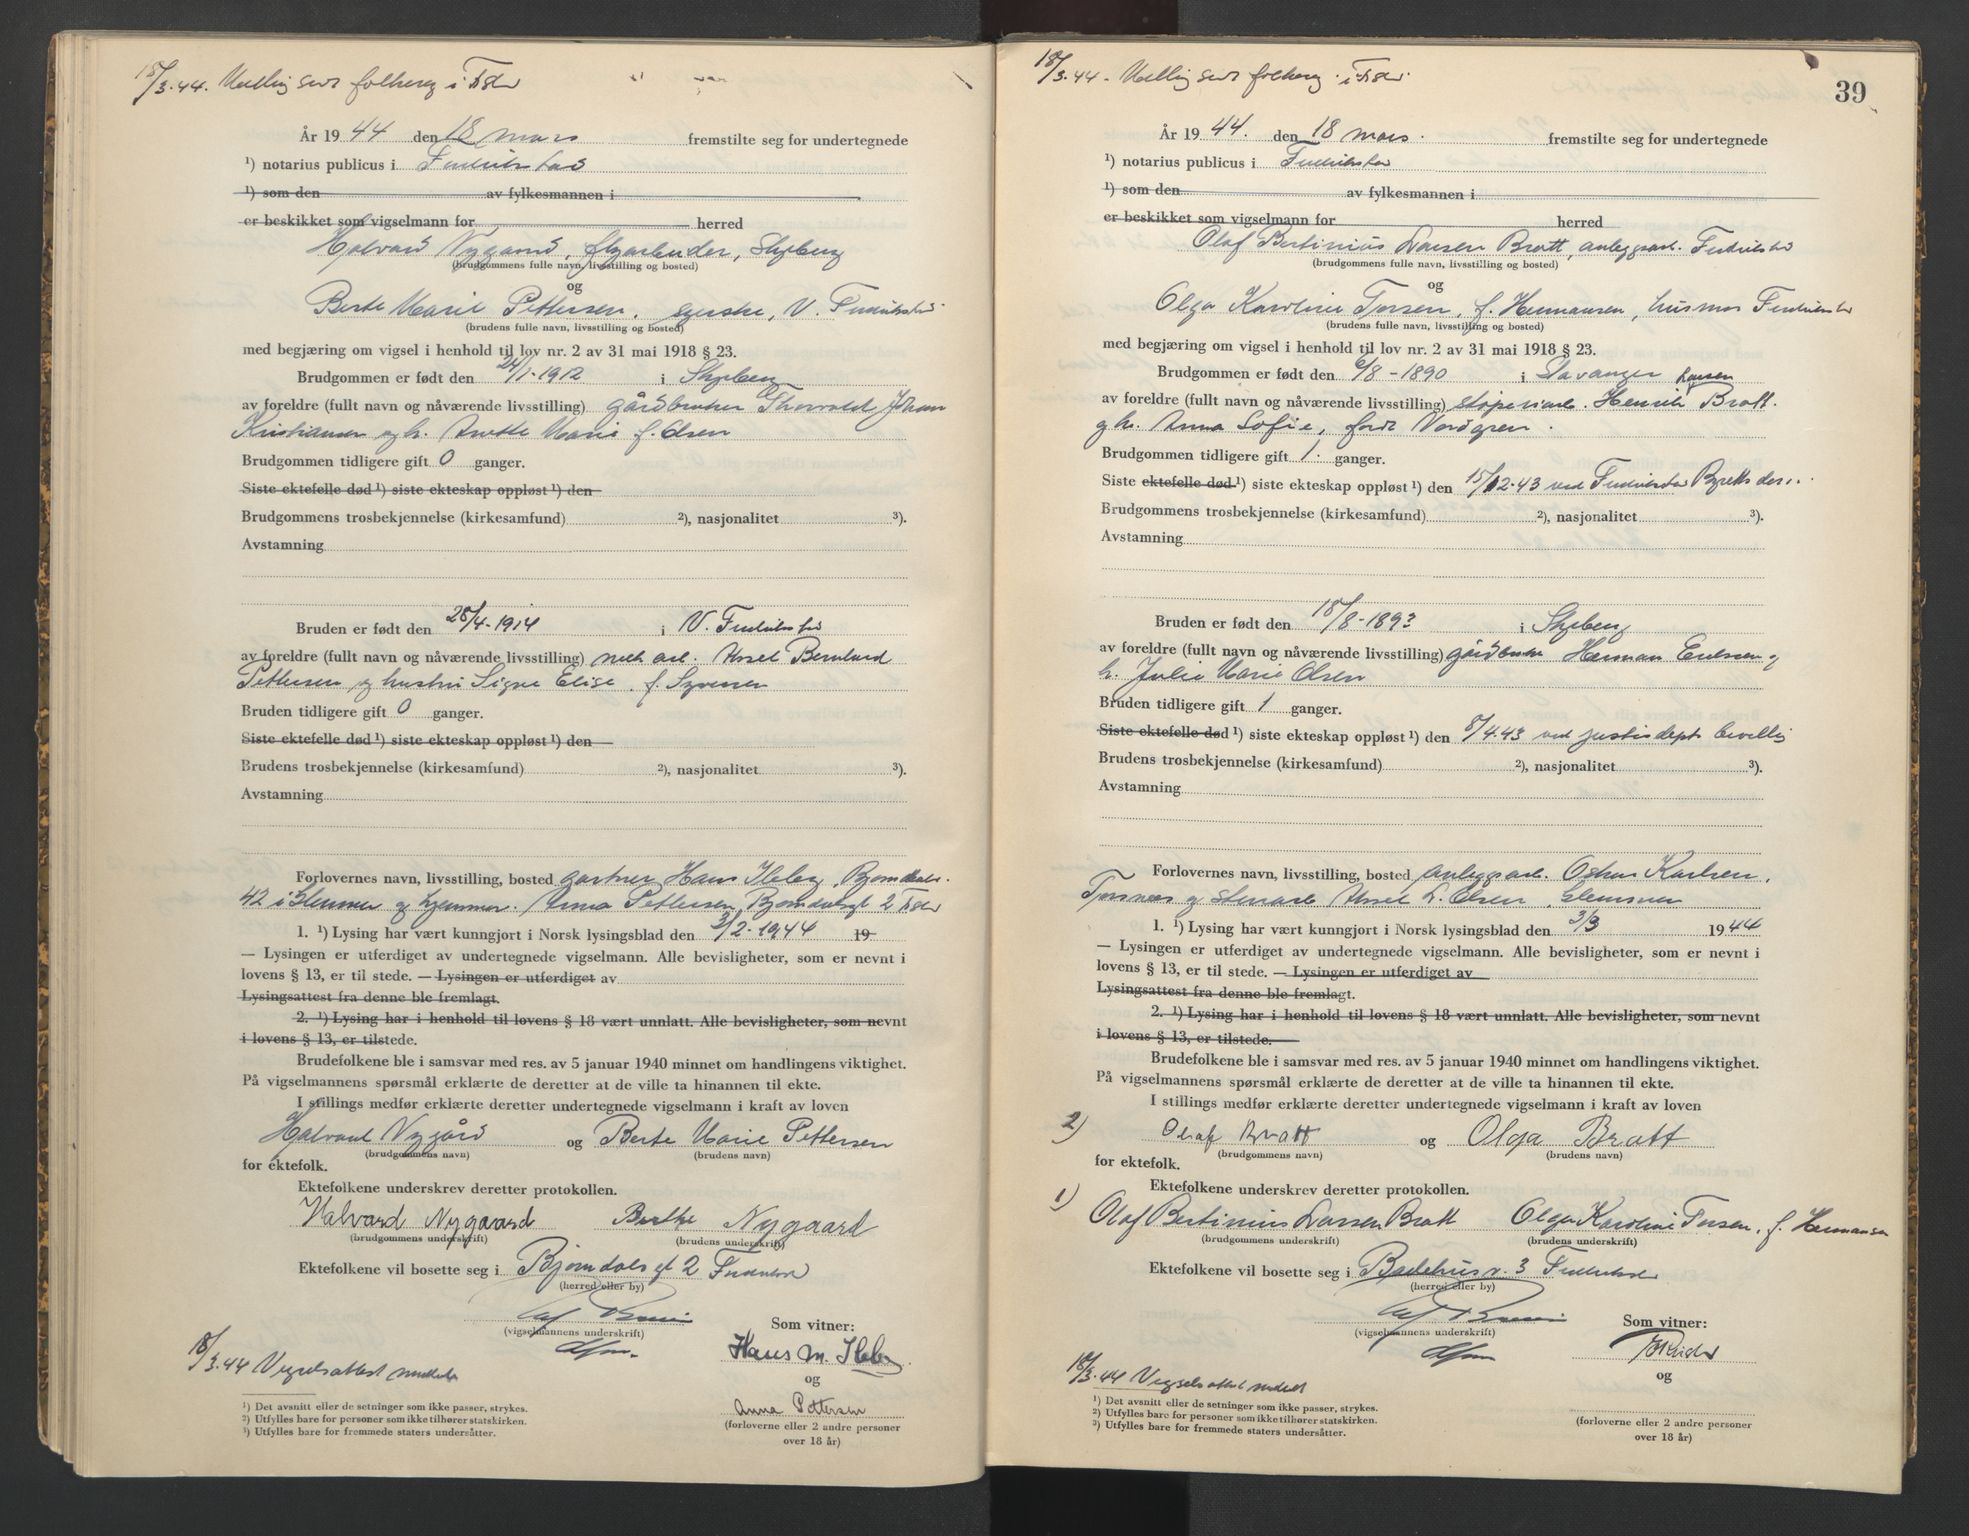 18/3.44. i
År 1944 den 18 mars fremstilte seg for undertegnede
¹) notarius publicus i Fredrikstad
¹) som den av fylkesmannen i
er beskikket som vigselmann for herred
Halvard Nygaard, Skjeberg
(brudgommens fulle navn, livsstilling og bosted)
og
Berte Marie Pettersen, syerske, V. Fredrikstad
(brudens fulle navn, livsstilling og bosted)
med begjæring om vigsel i henhold til lov nr. 2 av 31 mai 1918 § 23.
Brudgommen er født den 24/1-1912 i Skjeberg
av foreldre (fullt navn og nåværende livsstilling) gårdbruker Thorvald Johan
Kristiansen og h. Marie f. Olsen
Brudgommen tidligere gift 0 ganger.
Siste ektefelle død ¹) siste ekteskap oppløst ¹) den
Brudgommens trosbekjennelse (kirkesamfund) ²), nasjonalitet ³).
Avstamning
Bruden er født den 28/4-1914 i V. Fredrikstad
av foreldre (fullt navn og nåværende livsstilling) mek. arb. Aksel Bernhard
Pettersen og hustru Signe Elise, f. Syversen
Bruden tidligere gift 0 ganger.
Siste ektefelle død ¹) siste ekteskap oppløst ¹) den
Brudens trosbekjennelse (kirkesamfund) ²), nasjonalitet ³).
Avstamning
Forlovernes navn, livsstilling, bosted gartner Hans
42 i Glemmen og hjemmev. Anna Pettersen, Bjørndalsgt 2
1. ¹) Lysing har vært kunngjort i Norsk lysingsblad den 3/2-1944 19
— Lysingen er utferdiget av undertegnede vigselmann. Alle bevisligheter, som er nevnt i
lovens § 13, er til stede. — Lysingen er utferdiget av
Lysingsattest fra denne ble fremlagt.
2. ¹) Lysing har i henhold til lovens § 18 vært unnlatt. Alle bevisligheter, som nevnt
i lovens § 13, er tilstede.
Brudefolkene ble i samsvar med res. av 5 januar 1940 minnet om handlingens viktighet.
På vigselmannens spørsmål erklærte de deretter at de ville ta hinannen til ekte.
I stillings medfør erklærte deretter undertegnede vigselmann i kraft av loven
Halvard Nygård og Berte Marie Pettersen
(brudgommens navn) (brudens navn)
for ektefolk.
Ektefolkene underskrev deretter protokollen.
Halvard Nygaard Berthe Nygaard
(brudgommens underskrift) (brudens underskrift)
Ektefolkene vil bosette seg i Bjørndalsgt 2 Fredrikstad
(herred eller by)
(vigselmannens underskrift)
Som vitner:
Hans M.
og
Anna Pettersen
(forloverne eller 2 andre personer
over 18 år)
18/3.44 Vigselsattest
¹) Det avsnitt eller de setninger som ikke passer, strykes.
²) Utfylles bare for personer som ikke tilhører statskirken.
³) Utfylles bare for fremmede staters undersåtter.
18/3.44. i
39
År 1944. den 18 mars. fremstilte seg for undertegnede
¹) notarius publicus i Fredrikstad
¹) som den av fylkesmannen i
er beskikket som vigselmann for herred
Olaf Bertinius Larsen Bratt, anleggsarb. Fredrikstad
(brudgommens fulle navn, livsstilling og bosted)
og
Olga Karoline Torsen, f. Hermansen, husmor Fredrikstad
(brudens fulle navn, livsstilling og bosted)
med begjæring om vigsel i henhold til lov nr. 2 av 31 mai 1918 § 23.
Brudgommen er født den 6/8-1890 i Stavanger
av foreldre (fullt navn og nåværende livsstilling) støperiarb. Henrik Larsen Bratt.
og h. Anna Sofie, født Nordgren.
Brudgommen tidligere gift 1. ganger.
Siste ektefelle død ¹) siste ekteskap oppløst ¹) den 15/12-43 ved Fredrikstad Byretts dom.
Brudgommens trosbekjennelse (kirkesamfund) ²), nasjonalitet ³).
Avstamning
Bruden er født den 18/8-1893 i Skjeberg
av foreldre (fullt navn og nåværende livsstilling) gårdbruker Herman Eriksen og
h. Julie Marie Olsen
Bruden tidligere gift 1 ganger.
Siste ektefelle død ¹) siste ekteskap oppløst ¹) den 8/4.43 ved justisdepts bevilling
Brudens trosbekjennelse (kirkesamfund) ²), nasjonalitet ³).
Avstamning
Forlovernes navn, livsstilling, bosted anleggsarb. Oskar Karlsen,
Torsnes og stenarb Aksel L. Olsen, Glemmen
1. ¹) Lysing har vært kunngjort i Norsk lysingsblad den 3/3 1944
— Lysingen er utferdiget av undertegnede vigselmann. Alle bevisligheter, som er nevnt i
lovens § 13, er til stede. — Lysingen er utferdiget av
Lysingsattest fra denne ble fremlagt.
2. ¹) Lysing har i henhold til lovens § 18 vært unnlatt. Alle bevisligheter, som nevnt
i lovens § 13, er tilstede.
Brudefolkene ble i samsvar med res. av 5 januar 1940 minnet om handlingens viktighet.
På vigselmannens spørsmål erklærte de deretter at de ville ta hinannen til ekte.
I stillings medfør erklærte deretter undertegnede vigselmann i kraft av loven
2) Olaf Bratt og Olga Bratt
(brudgommens navn) (brudens navn)
for ektefolk.
Ektefolkene underskrev deretter protokollen.
1) Olaf Bertinius Larsen Bratt Olga Karoline Torsen, f. Hermansen
(brudgommens underskrift) (brudens underskrift)
Ektefolkene vil bosette seg i Badehusg. 3 Fredrikstad
(herred eller by)
(vigselmannens underskrift)
Som vitner:
og
(forloverne eller 2 andre personer
over 18 år)
18/3.44 Vigselsattest
¹) Det avsnitt eller de setninger som ikke passer, strykes.
²) Utfylles bare for personer som ikke tilhører statskirken.
³) Utfylles bare for fremmede staters undersåtter.